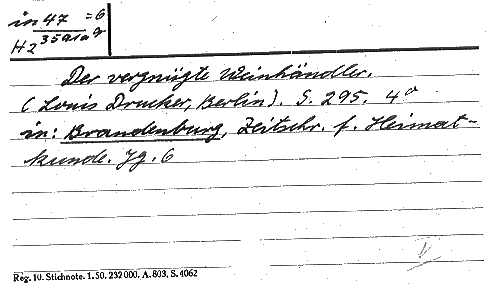 in 47 = 6
H2 359/a 9
Der vergnügte Weinhändler.
(Louis Drucker, Berlin). S. 295. 4°
in: Brandenburg, Zeitschr. f. Heimat-
kunde. Jg. 6
Reg. 10. Stichnote. 1. 50. 232000. A. 803, S. 4062